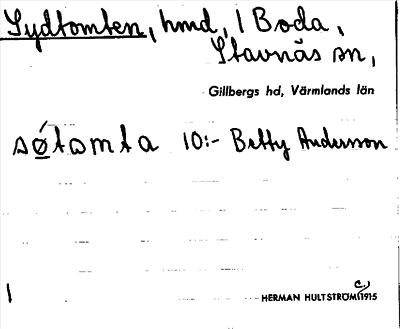 Sydtomten, hmd, 1 Boda,
Stavnäs sn,
Gillbergs hd, Värmlands län
søtomta 10:- Betty Andersson
HERMAN HULTSTRÖM c. 1915